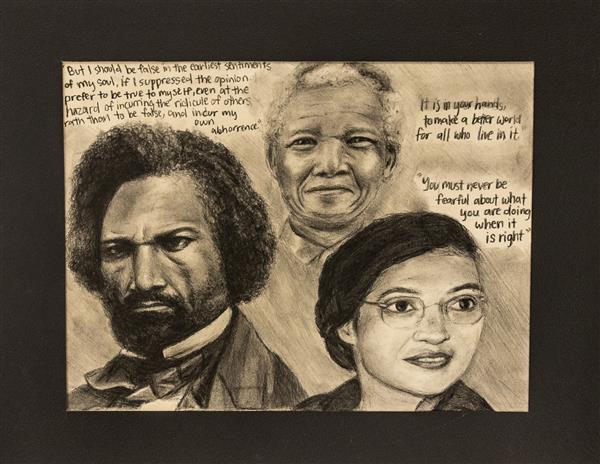 "But I should be false in the earliest sentiments
of my soul, if I suppressed the opinion
prefer to be true to myself, even at the
hazard of incurring the ridicule of others,
rath than to be false, and incur my
own
abhorrence"
It is in your hands,
to make a better world
for all who live in it."
"You must never be
fearful about what
you are doing
when it
is right"